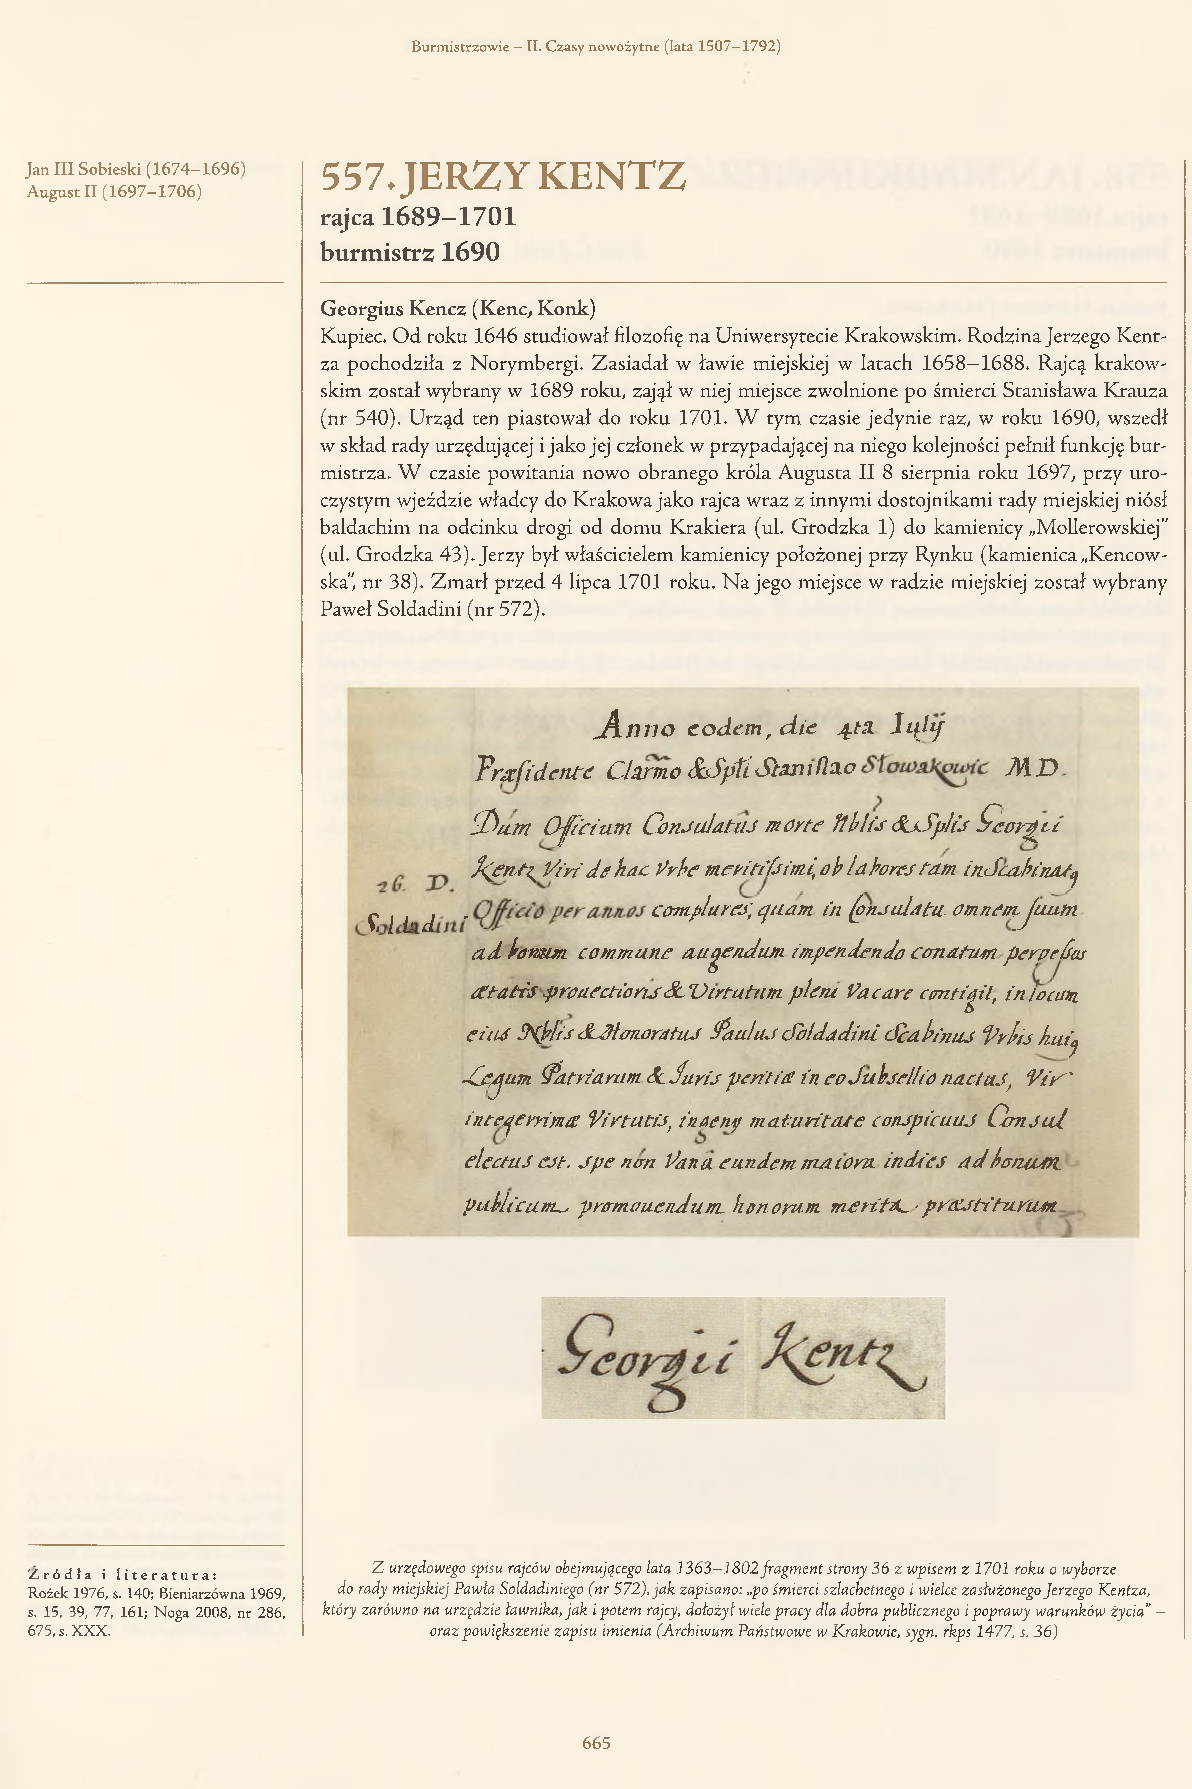 Burmistrzowie – II. Czasy nowożytne (lata 1507–1792)
Jan III Sobieski (1674–1696)
August II (1697–1706)
557. JERZY KENTZ
rajca 1689–1701
burmistrz 1690
Georgius Kencz (Kenc, Konk)
Kupiec. Od roku 1646 studiował filozofię na Uniwersytecie Krakowskim. Rodzina Jerzego Kent-
za pochodziła z Norymbergi. Zasiadał w ławie miejskiej w latach 1658–1688. Rajcą krakow-
skim został wybrany w 1689 roku, zajął w niej miejsce zwolnione po śmierci Stanisława Krauza
(nr 540). Urząd ten piastował do roku 1701. W tym czasie jedynie raz, w roku 1690, wszedł
w skład rady urzędującej i jako jej członek w przypadającej na niego kolejności pełnił funkcję bur-
mistrza. W czasie powitania nowo obranego króla Augusta II 8 sierpnia roku 1697, przy uro-
czystym wjeździe władcy do Krakowa jako rajca wraz z innymi dostojnikami rady miejskiej niósł
baldachim na odcinku drogi od domu Krakiera (ul. Grodzka 1) do kamienicy „Mollerowskiej”
(ul. Grodzka 43). Jerzy był właścicielem kamienicy położonej przy Rynku (kamienica „Kencow-
ska”, nr 38). Zmarł przed 4 lipca 1701 roku. Na jego miejsce w radzie miejskiej został wybrany
Paweł Soldadini (nr 572).
Anno eodem, die 4ta Iulij
Præsidente Clarmo & Spli Stanislao Słowakowic MD.
Dum Officium Consulatûs morte Nblis & Splis Georgii
Kentz Viri de hac Vrbe meritissimi, ob labores tam in Scabinatq
26. D.
Soldadini
Officio per annos complures, quam in Consulatu omnem suum
ad bonum commune augendum impendendo conatum perpessos
ætatis prouectioris & Virtutum pleni Vacare contigit, in locum
eius Nblis & Honoratus Paulus Soldadini Scabinus Vrbis huiq
Legum Patriarum & Juris peritiæ in eo Subsellio nactus, Vir
integerrimæ Virtutis, ingenij maturitate conspicuus Consul
electus est. spe non Vanâ eundem maiora indies ad bonum
publicum promouendum honorum merita præstiturum
Georgii Kentz
Źródła i literatura:
Rożek 1976, s. 140; Bieniarzówna 1969,
s. 15, 39, 77, 161; Noga 2008, nr 286,
675, s. XXX.
Z urzędowego spisu rajców obejmującego lata 1363–1802 fragment strony 36 z wpisem z 1701 roku o wyborze
do rady miejskiej Pawła Soldadiniego (nr 572), jak zapisano: „po śmierci szlachetnego i wielce zasłużonego Jerzego Kentza,
który zarówno na urzędzie ławnika, jak i potem rajcy, dołożył wiele pracy dla dobra publicznego i poprawy warunków życia” –
oraz powiększenie zapisu imienia (Archiwum Państwowe w Krakowie, sygn. rkps 1477, s. 36)
665